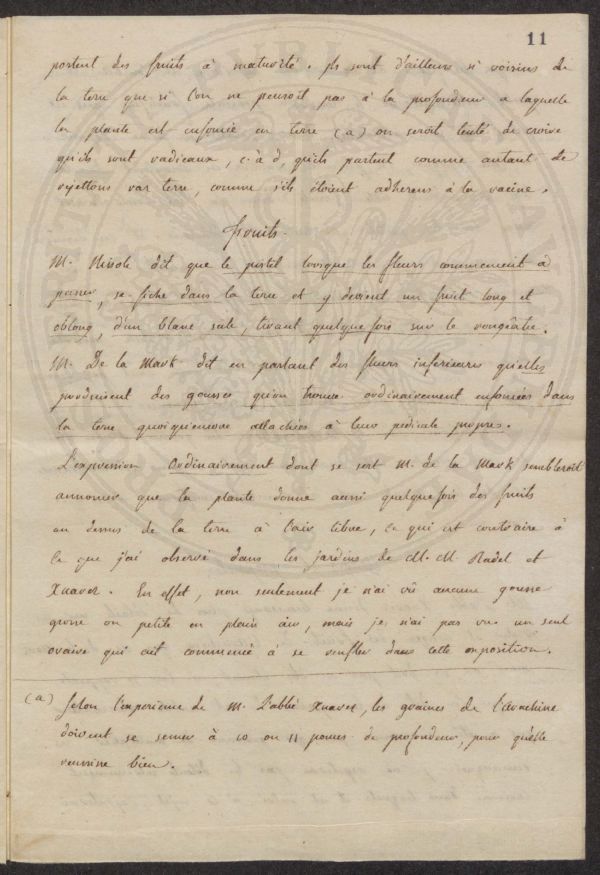 11
portent des fruits à maturité. Ils sont d'ailleurs si voisins de
la terre que si l'on ne pensoit pas à la profondeur a laquelle
la plante est enfoncée en terre (a) on seroit tenté de croire
qu'ils sont radicaux, c. à d, qu'ils partent comme autant de
rejettons par terre, comme s'ils étoient adherens à la racine.
fruits.
M. Nissole dit que le pistil lorsque les fleurs commencent à
passer, se fiche dans la terre et y devient un fruit long et
oblong, d'un blanc sale, tirant quelque fois sur le rougeâtre.
M. De la Mark dit en parlant des fleurs inferieures qu'elles
produisent des gousses qu'on trouve ordinairement enfoncées dans
la terre quoiqu'encore attachées à leur pedicule propres.
L'expression Ordinairement dont se sert M. de la Mark sembleroit
annoncer que la plante donne aussi quelque fois des fruits
au dessus de la terre à l'air libre, ce qui est contraire à
ce que j'ai observé dans les jardins de M. M. Nadal et
Xuarez. En effet, non seulement je n'ai vû aucune gousse
grosse ou petite en plein air, mais je n'ai pas vu un seul
ovaire qui ait commencé à se renfler dans cette exposition.
(a) Selon l'experience de M. l'abbé Xuarez, les graines de l'arachine
doivent se semer à 10 ou 11 pouces de profondeur, pour qu'elle
reussisse bien.